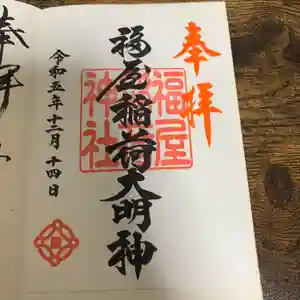 奉拝
福屋稲荷大明神
福屋
神社
令和五年十二月十四日
奉拝